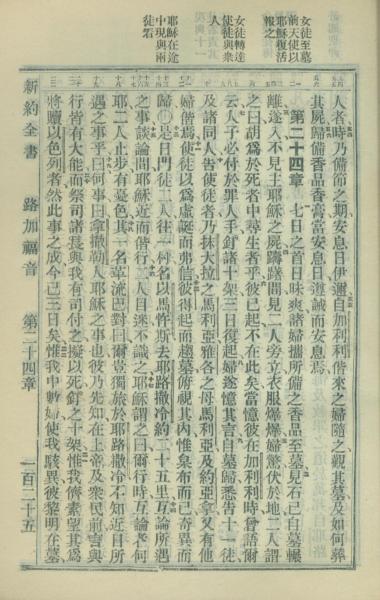 女徒至墓
前天使以
耶穌復活
報之
女徒轉達
使徒與衆
人
耶穌在途
中現與兩
徒看
人者時乃備節之期安息日伊邇自加利利偕來之婦隨之觀其墓及如何葬
其屍歸備香品香膏當安息日遵誡而安息焉
第二十四章 七日之首日昧爽諸婦攜所備之香品至墓見石已自墓輾
離遂入不見主耶穌之屍躊躇間見二人旁立衣服爆爆婦驚伏於地二人謂
之曰胡爲於死者中尋生者乎彼已起不在此矣當憶彼在加利利時曾語爾
云人子必付於罪人手釘諸十架三日復起婦遂憶其言自墓歸悉告十一徒
及諸同人告使徒者乃抹大拉之馬利亞雅各之母馬利亞及約亞拿又有他
婦偕焉使徒以爲虛誕而弗信彼得起而趨墓俯視其內惟枲布而已奇異而
歸○是日門徒二人往一村名以馬忤斯去耶路撒冷約二十五里互論所遇
之事談論間耶穌近而偕行二人目迷不識之耶穌謂之曰爾行時互論者何
耶二人止步有憂色其一名革流巴對曰爾豈獨旅於耶路撒冷不知近日所
遇之事乎曰何事曰拿撒勒人耶穌之事也彼乃先知在上帝及衆民前言與
行皆有大能而祭司諸長與我有司付之擬以死釘之十架惟我儕素望其爲
將贖以色列者然此事之成今已三日矣惟我中數婦使我駭異彼黎明在墓
新約全書 路加福音 第二十四章 二百二十五